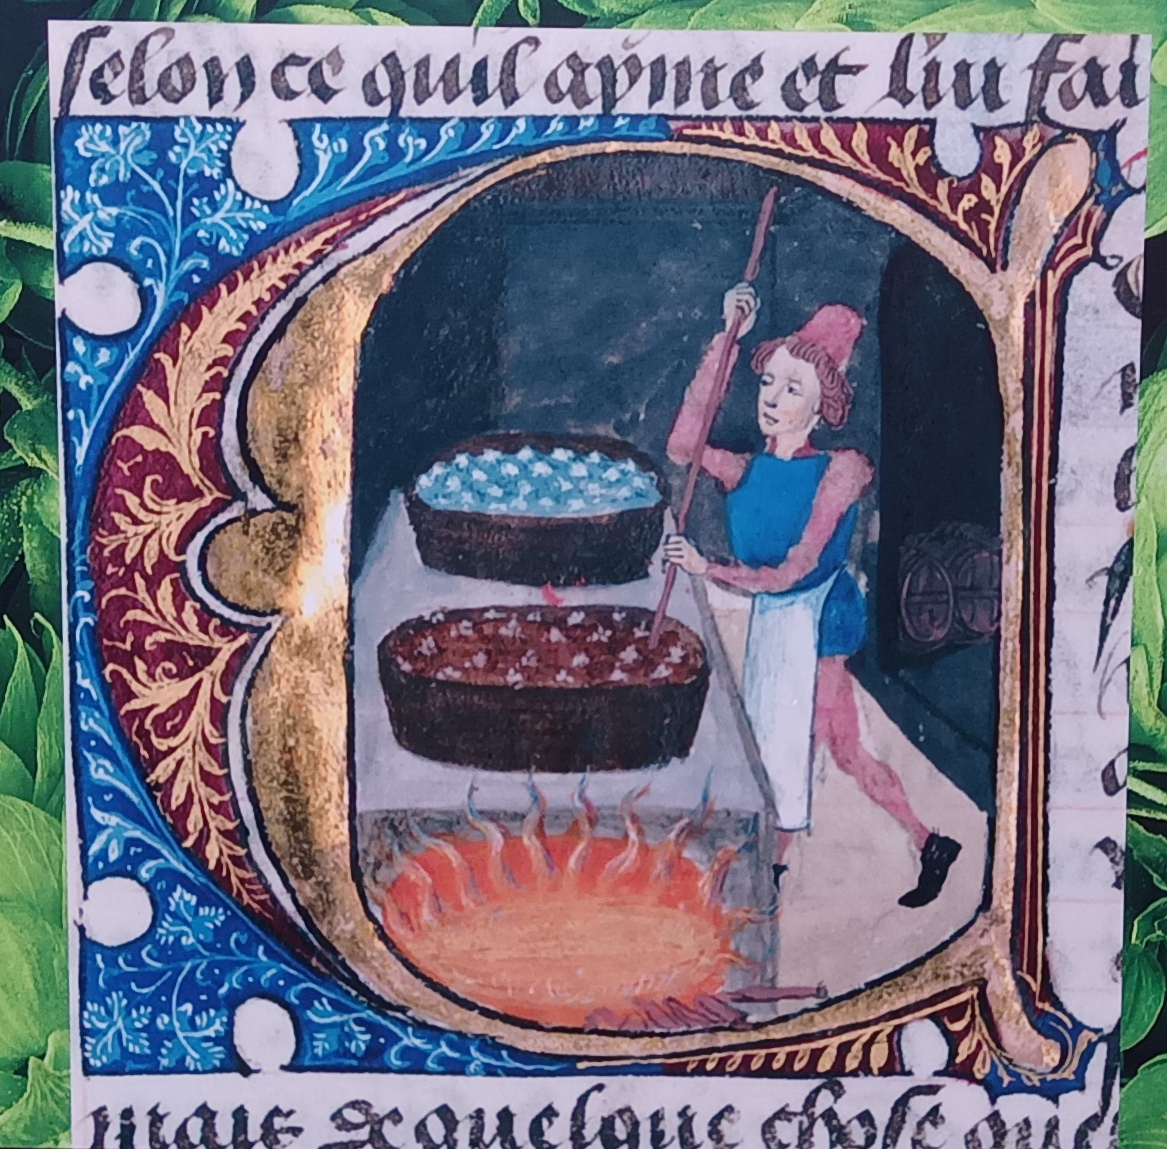 selon ce quil ayme et luy fai
mais De quelque chose que